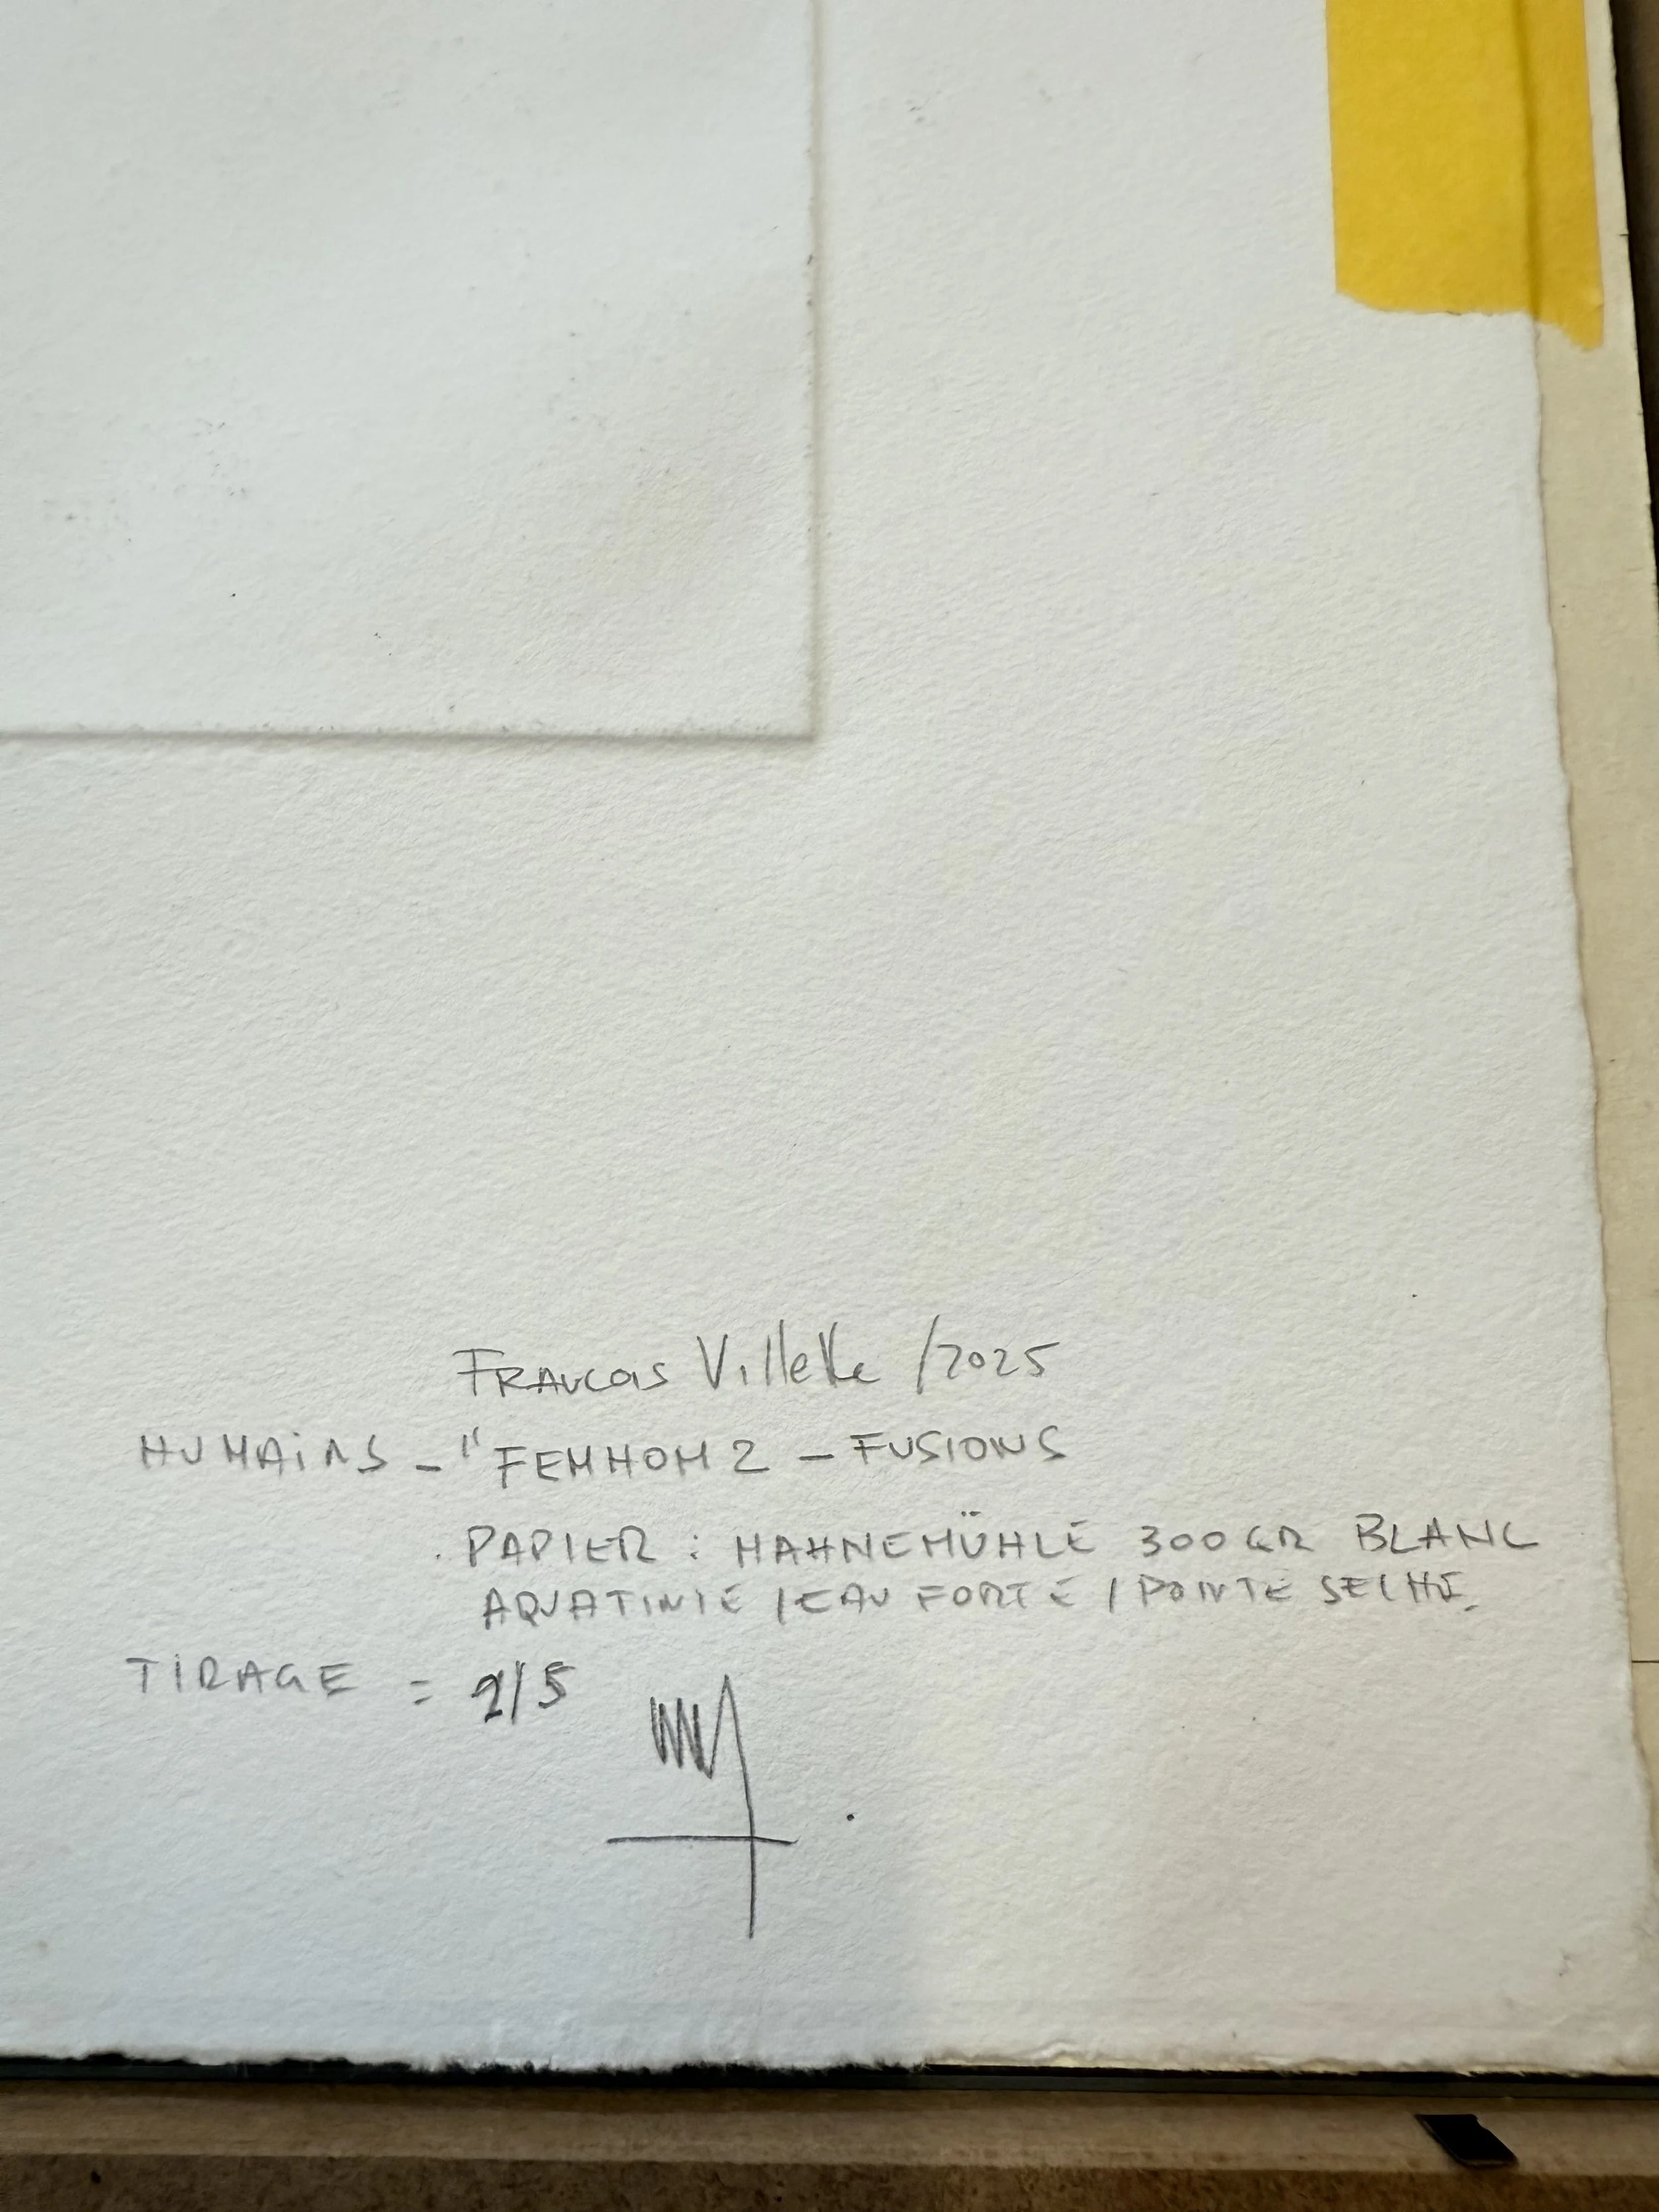 FRANCOIS Villette /2025
HUMAINS - "FEMHOM 2 - FUSIONS
. PAPIER : HAHNEMÜHLE 300 GR BLANC
AQUATINTE / EAU FORTE / POINTE SECHE.
TIRAGE = 2/5